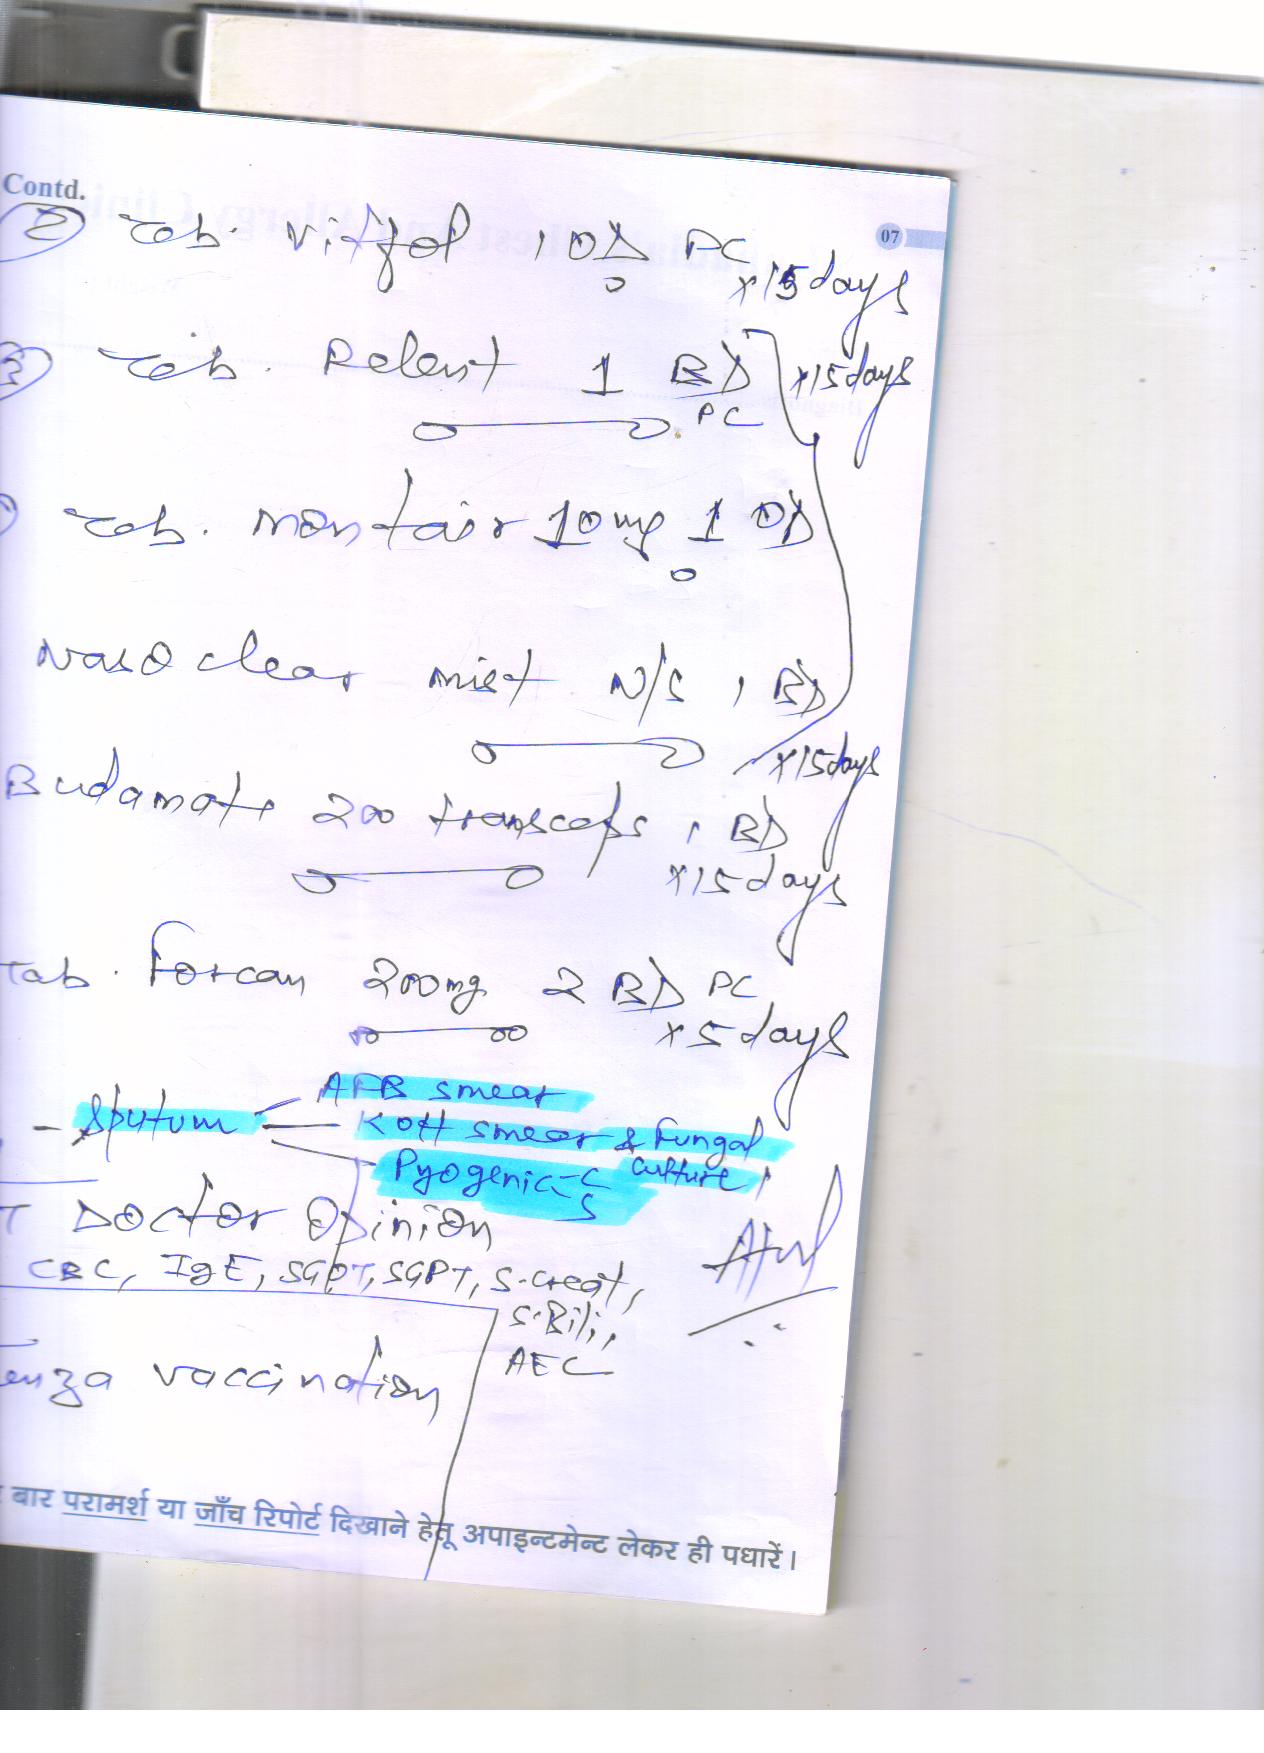 Contd.
07
② Tab. Vitfol 1 OD PC
x 15 days
③ Tab. Relent 1 BD x 15 days
PC
Tab. Montair 10mg 1 OD
Nasoclear mist N/S 1 BD
x 15 days
Budamate 200 transcaps 1 BD
x 15 days
Tab. Forcan 200mg 2 BD PC
x 5 days
- Sputum
AFB smear
KOH smear & Fungal
culture,
Pyogenic - C/S
T Doctor Opinion
CBC, IgE, SGOT, SGPT, S.creat,
S.Bili,
AEC
enza vaccination
बार परामर्श या जाँच रिपोर्ट दिखाने हेतू अपाइन्टमेन्ट लेकर ही पधारें।